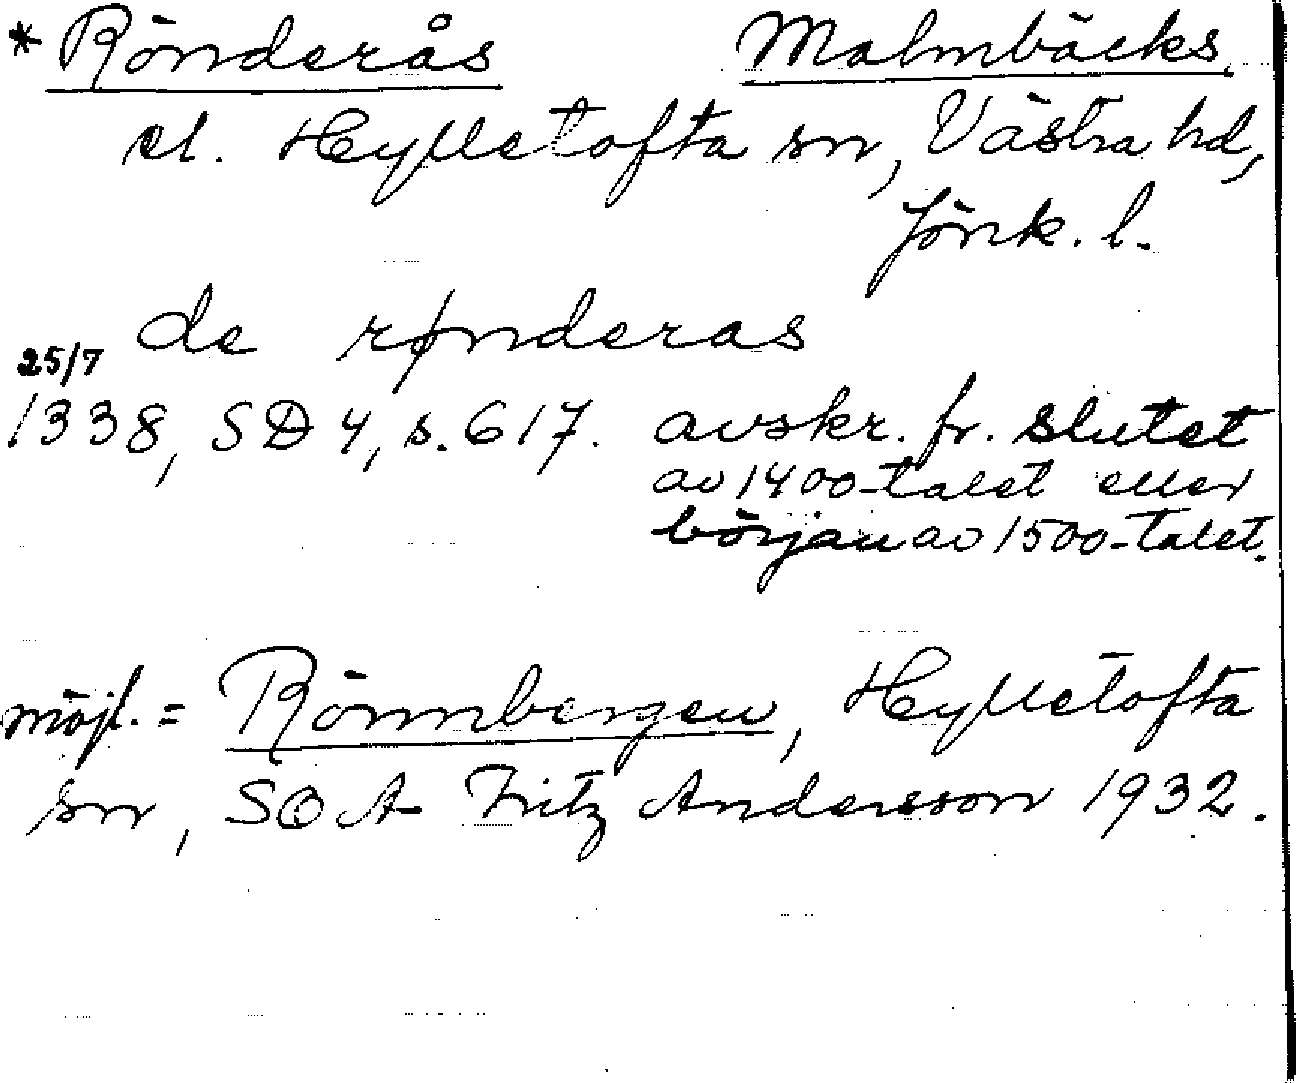 * Rönderås Malmbäcks
el. Hylletofta sn, Västra hd,
Jönk. l.
de rønderas
25/7
1338, SD 4, s. 617. avskr. fr. slutet
av 1400-talet eller
början av 1500-talet.
möjl. = Rönnbergen, Hylletofta
sn, SOA Fritz Andersson 1932.